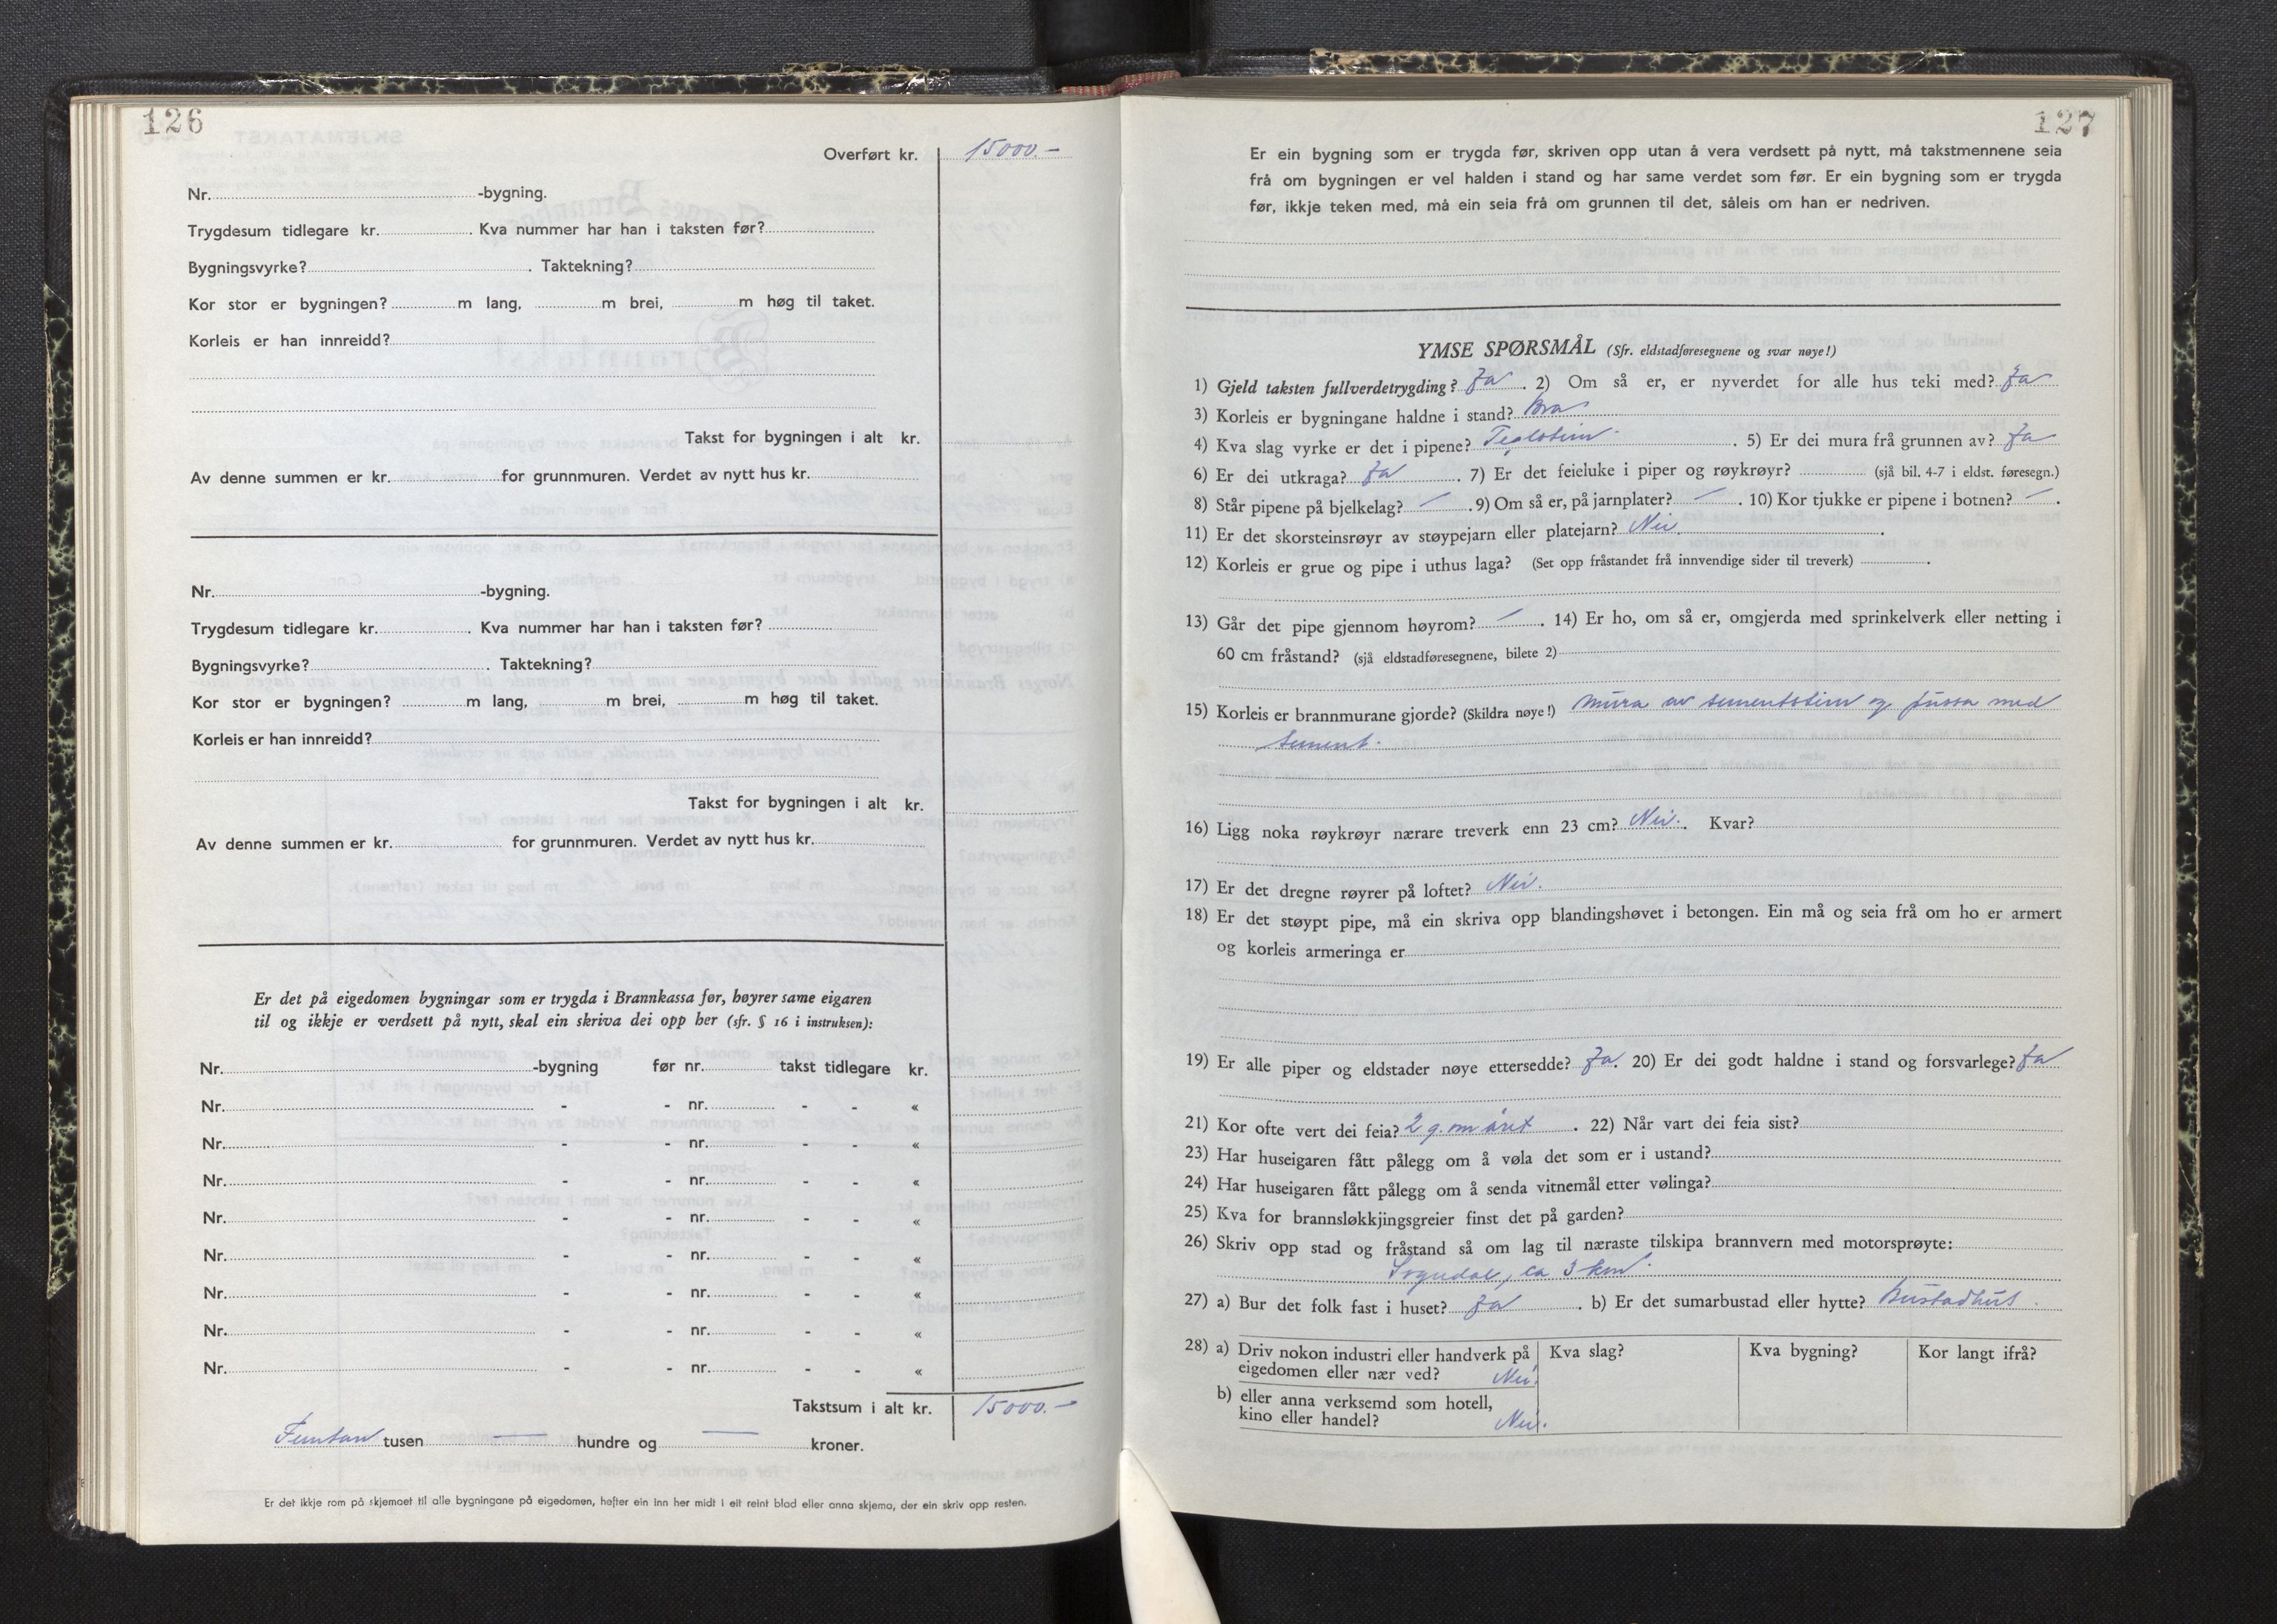 126
Overført kr. 15000.-
Nr. -bygning.
Trygdesum tidlegare kr. . Kva nummer har han i taksten før?
Bygningsvyrke? . Taktekning?
Kor stor er bygningen? m lang, m brei, m høg til taket.
Korleis er han innreidd?
Takst for bygningen i alt kr.
Av denne summen er kr. for grunnmuren. Verdet av nytt hus kr.
Nr. -bygning.
Trygdesum tidlegare kr. . Kva nummer har han i taksten før?
Bygningsvyrke? . Taktekning?
Kor stor er bygningen? m lang, m brei, m høg til taket.
Korleis er han innreidd?
Takst for bygningen i alt kr.
Av denne summen er kr. for grunnmuren. Verdet av nytt hus kr.
Er det på eigedomen bygningar som er trygda i Brannkassa før, høyrer same eigaren
til og ikkje er verdsett på nytt, skal ein skriva dei opp her (sfr. § 16 i instruksen):
Nr. -bygning før nr. takst tidlegare kr.
Nr. - - nr. - - «
Nr. - - nr. - - «
Nr. - - nr. - - «
Nr. - - nr. - - «
Nr. - - nr. - - «
Nr. - - nr. - - «
Nr. - - nr. - - «
Nr. - - nr. - - «
Takstsum i alt kr. 15000.-
Femtan tusen — hundre og — kroner.
Er det ikkje rom på skjemaet til alle bygningane på eigedomen, hefter ein inn her midt i eit reint blad eller anna skjema, der ein skriv opp resten.
127
Er ein bygning som er trygda før, skriven opp utan å vera verdsett på nytt, må takstmennene seia
frå om bygningen er vel halden i stand og har same verdet som før. Er ein bygning som er trygda
før, ikkje teken med, må ein seia frå om grunnen til det, såleis om han er nedriven.
YMSE SPØRSMÅL (Sfr. eldstadføresegnene og svar nøye!)
1) Gjeld taksten fullverdetrygding? Ja . 2) Om så er, er nyverdet for alle hus teki med? Ja
3) Korleis er bygningane haldne i stand? Bra
4) Kva slag vyrke er det i pipene? Teglstein . 5) Er dei mura frå grunnen av? Ja
6) Er dei utkraga? Ja . 7) Er det feieluke i piper og røykrøyr? (sjå bil. 4-7 i eldst. føresegn.)
8) Står pipene på bjelkelag? — . 9) Om så er, på jarnplater? — . 10) Kor tjukke er pipene i botnen? — .
11) Er det skorsteinsrøyr av støypejarn eller platejarn? Nei .
12) Korleis er grue og pipe i uthus laga? (Set opp fråstandet frå innvendige sider til treverk) .
13) Går det pipe gjennom høyrom? — . 14) Er ho, om så er, omgjerda med sprinkelverk eller netting i
60 cm fråstand? (sjå eldstadføresegnene, bilete 2)
15) Korleis er brannmurane gjorde? (Skildra nøye!) Mura av sementstein og pussa med
sement.
16) Ligg noka røykrøyr nærare treverk enn 23 cm? Nei. Kvar?
17) Er det dregne røyrer på loftet? Nei.
18) Er det støypt pipe, må ein skriva opp blandingshøvet i betongen. Ein må og seia frå om ho er armert
og korleis armeringa er
19) Er alle piper og eldstader nøye ettersedde? Ja. 20) Er dei godt haldne i stand og forsvarlege? Ja
21) Kor ofte vert dei feia? 2 g. om året . 22) Når vart dei feia sist?
23) Har huseigaren fått pålegg om å vøla det som er i ustand?
24) Har huseigaren fått pålegg om å senda vitnemål etter vølinga?
25) Kva for brannsløkkjingsgreier finst det på garden?
26) Skriv opp stad og fråstand så om lag til næraste tilskipa brannvern med motorsprøyte:
Sogndal, ca 3 km.
27) a) Bur det folk fast i huset? Ja . b) Er det sumarbustad eller hytte? Bustadhus.
28) a) Driv nokon industri eller handverk på Kva slag? Kva bygning? Kor langt ifrå?
eigedomen eller nær ved? Nei.
b) eller anna verksemd som hotell,
kino eller handel? Nei.